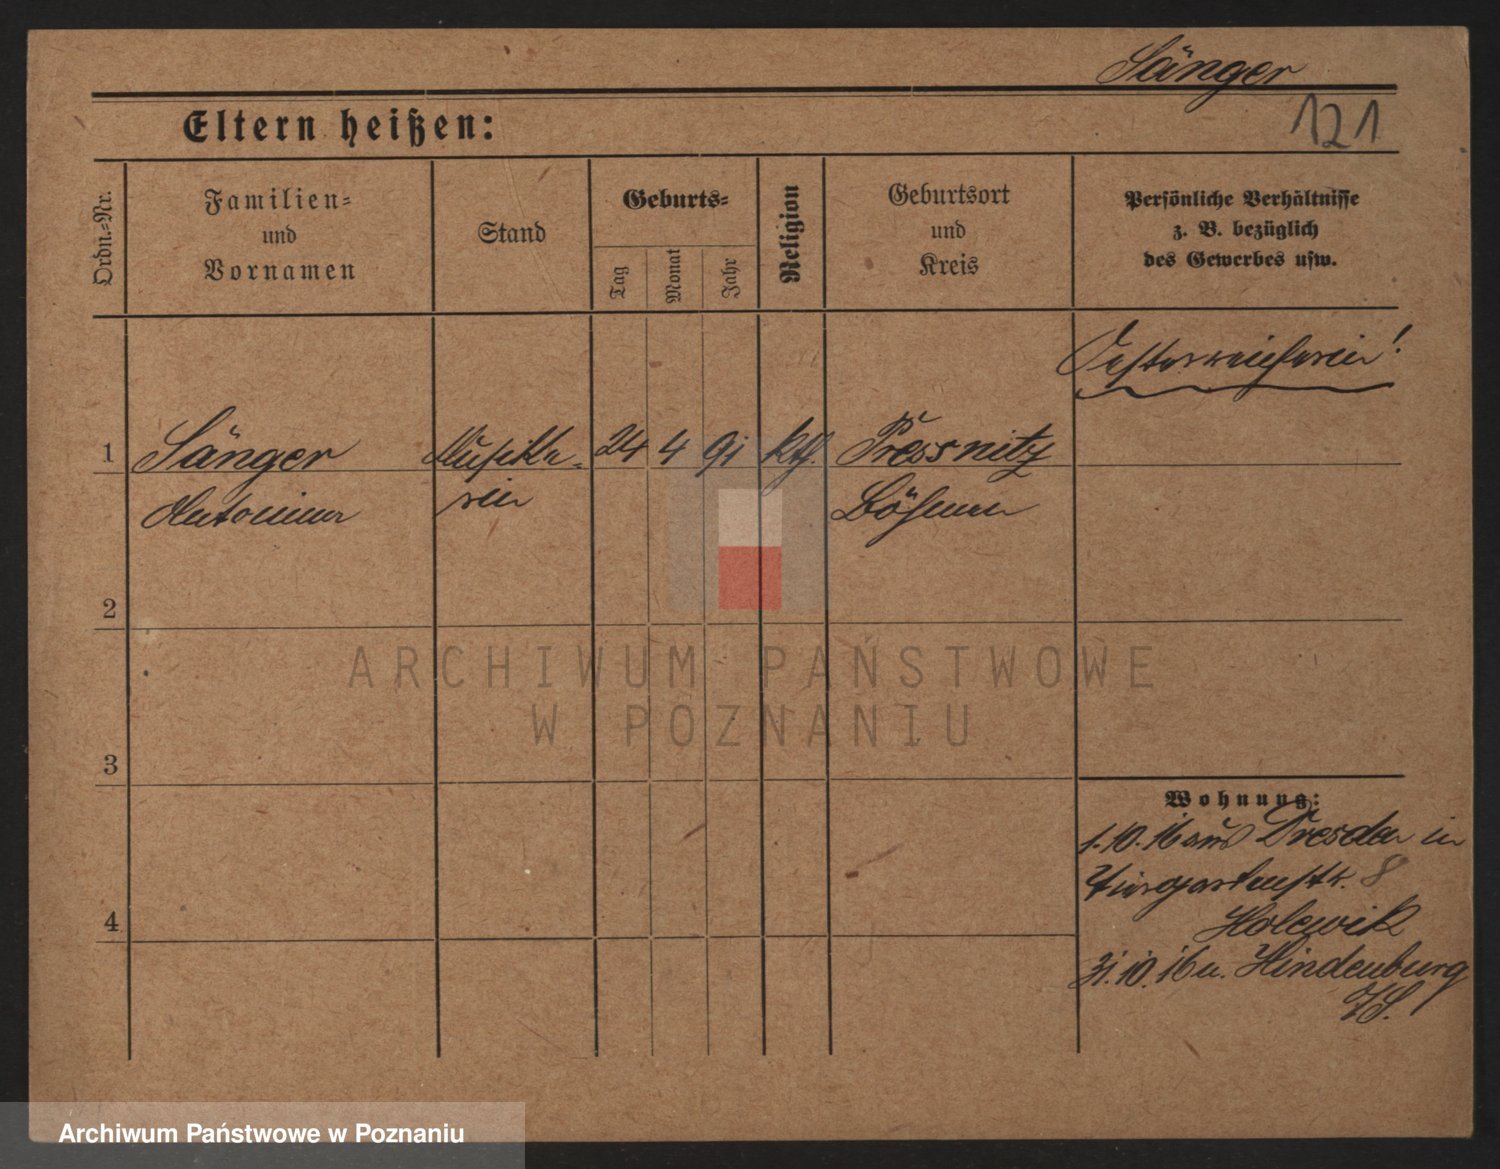 Sänger
121
Eltern heißen:
Ordn.-Nr.
Familien-
und
Vornamen
Stand
Geburts-
Tag
Monat
Jahr
Religion
Geburtsort
und
Kreis
Persönliche Verhältnisse
z. B. bezüglich
des Gewerbes usw.
Oesterreicherin!
1 Sänger Musike- 24 4 91 kth. Pressnitz
Antonina rin Böhmen
2
3
4
Wohnung:
1.10.16 aus Dresden in
Tiergartenstr. 8
Holewik
31.10.16 n. Hindenburg
O/S.
ARCHIWUM PAŃSTWOWE
W POZNANIU
Archiwum Państwowe w Poznaniu